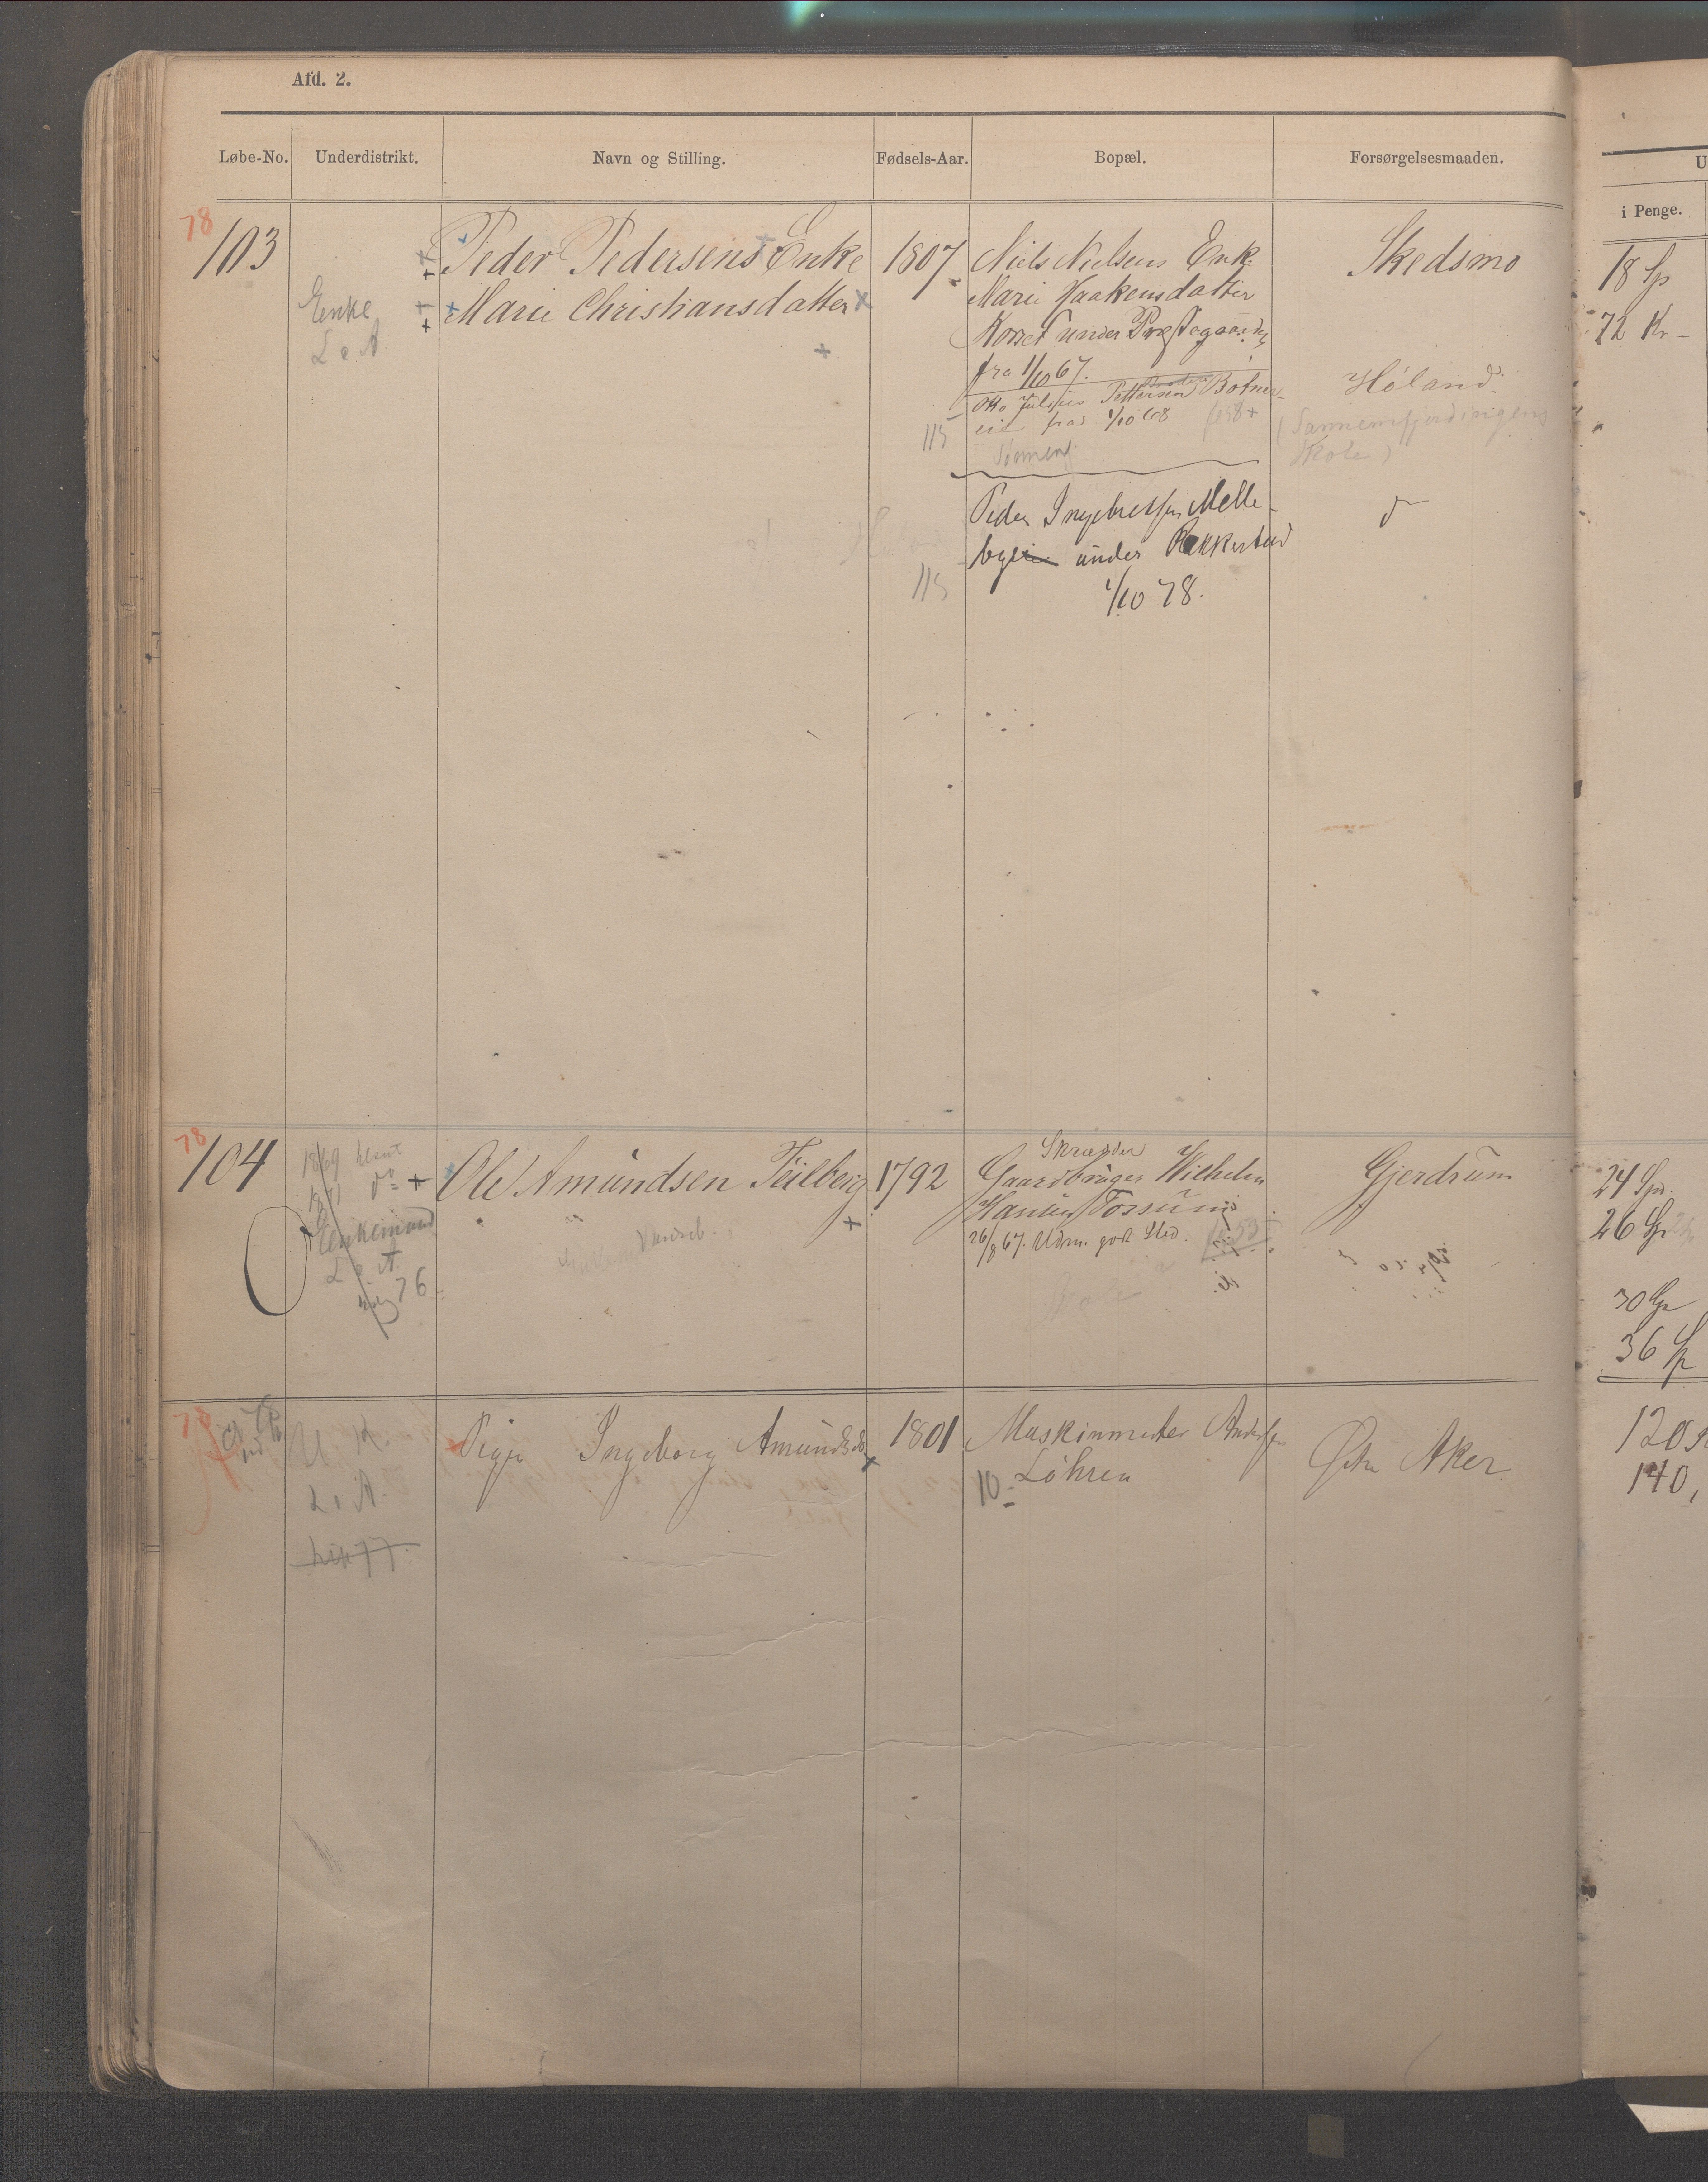 Afd. 2.
Løbe-No. Underdistrikt. Navn og Stilling. Fødsels-Aar. Bopæl. Forsørgelsesmaaden.
U
i Penge.
78
103
Enke
L. A
Peder Pedersens Enke
Marie Christiansdatter
1807
Niels Nielsens Enk.
Marie Haakensdatter
Korset under Præstegaarden
fra 1/10 67.
Otto Julius Pettersen Botner
eie fra 1/10 68
115
Peder Ingebretsen Melle-
bye under Rakkestad
1/10 78.
115
Skedsmo
Høland
(Sannemfjerdingens
Skole)
do
18 Sp
72 Kr -
78
104
1869
1871 do
Enkemand
L. A.
76
Ole Amundsen Teilberg
1792
Skrædder
Gaardbruger Wilhelm
Hansen Tossum
26/8 67. Udm. godt Sted.
Gjerdrum
24 Spd.
26 Sp
30 Sp
36 Sp
78
U K.
L. A.
Pige Ingeborg Amundsd.
1801
Maskinmester Andersen
Løhren
10
Østre Aker
120
140,